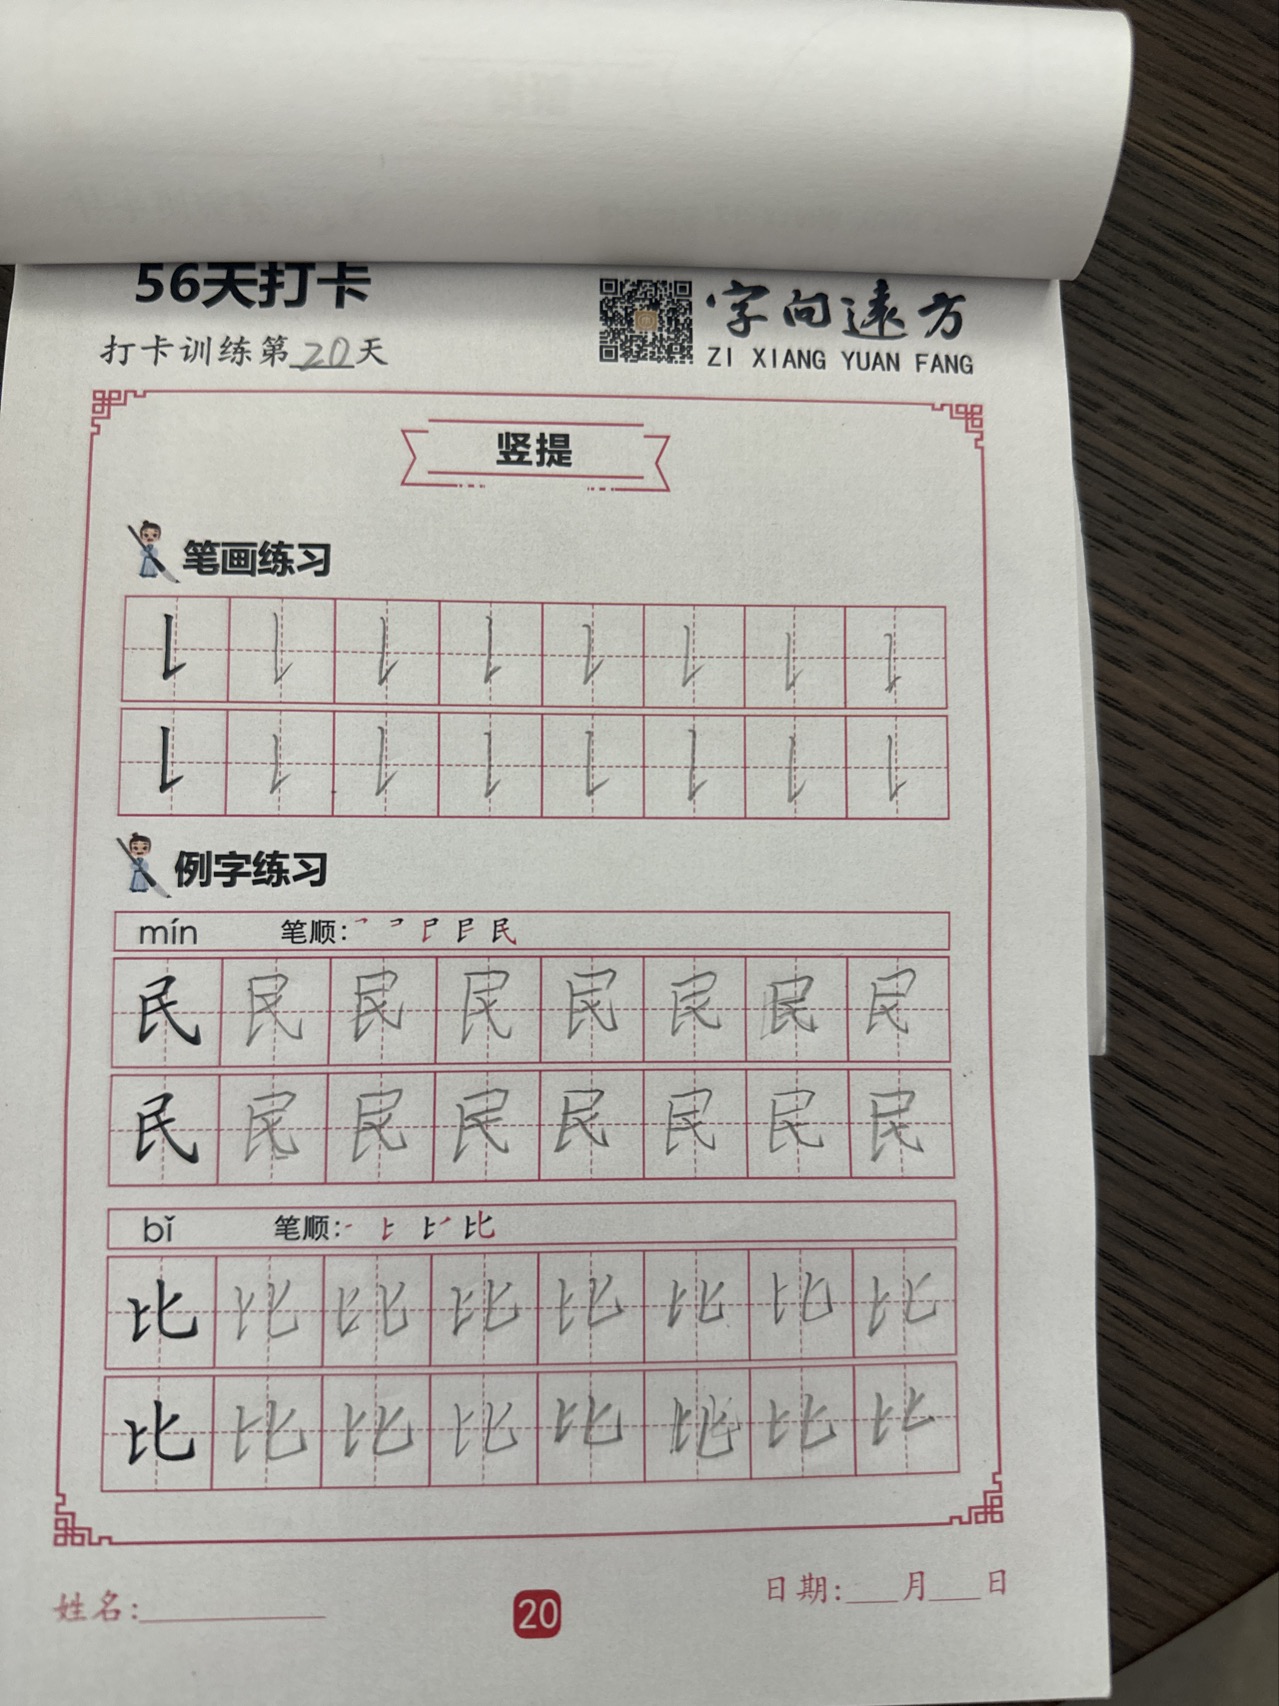 56天打卡
字向远方
打卡训练第20天
ZI XIANG YUAN FANG
竖提
笔画练习
㇙ ㇙ ㇙ ㇙ ㇙ ㇙ ㇙ ㇙
㇙ ㇙ ㇙ ㇙ ㇙ ㇙ ㇙ ㇙
例字练习
mín 笔顺: 民
民 民 民 民 民 民 民 民
民 民 民 民 民 民 民 民
bǐ 笔顺: 比
比 比 比 比 比 比 比 比
比 比 比 比 比 比 比 比
姓名:
20
日期: 月 日